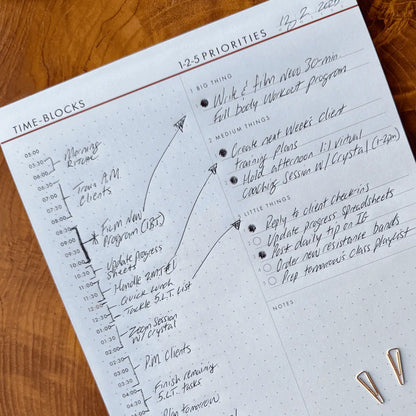 12.2.2025
TIME-BLOCKS
05:00
05:30
06:00
Morning
Routine
Train A.M.
Clients
08:30
09:00
09:30
10:00
10:30
11:00
11:30
12:00
12:30
01:00
01:30
02:00
02:30
03:00
03:30
04:00
04:30
Film New
Program (1BT)
Update Progress
Sheets
Handle 2MT #1
Quick Lunch
Tackle 5.L.T. List
Zoom Session
w/ Crystal
P.M. Clients
Finish remaining
5.L.T. tasks
Plan tomorrow
1-2-5 PRIORITIES
1 BIG THING
Write & film New 30-min
Full Body Workout program
2 MEDIUM THINGS
Create next week's client
training plans
Hold afternoon 1:1 virtual
coaching session w/ Crystal (1-2pm)
5 LITTLE THINGS
Reply to client check-ins
Update progress spreadsheets
Post daily tip on IG
Order new resistance bands
Prep tomorrow's class playlist
NOTES